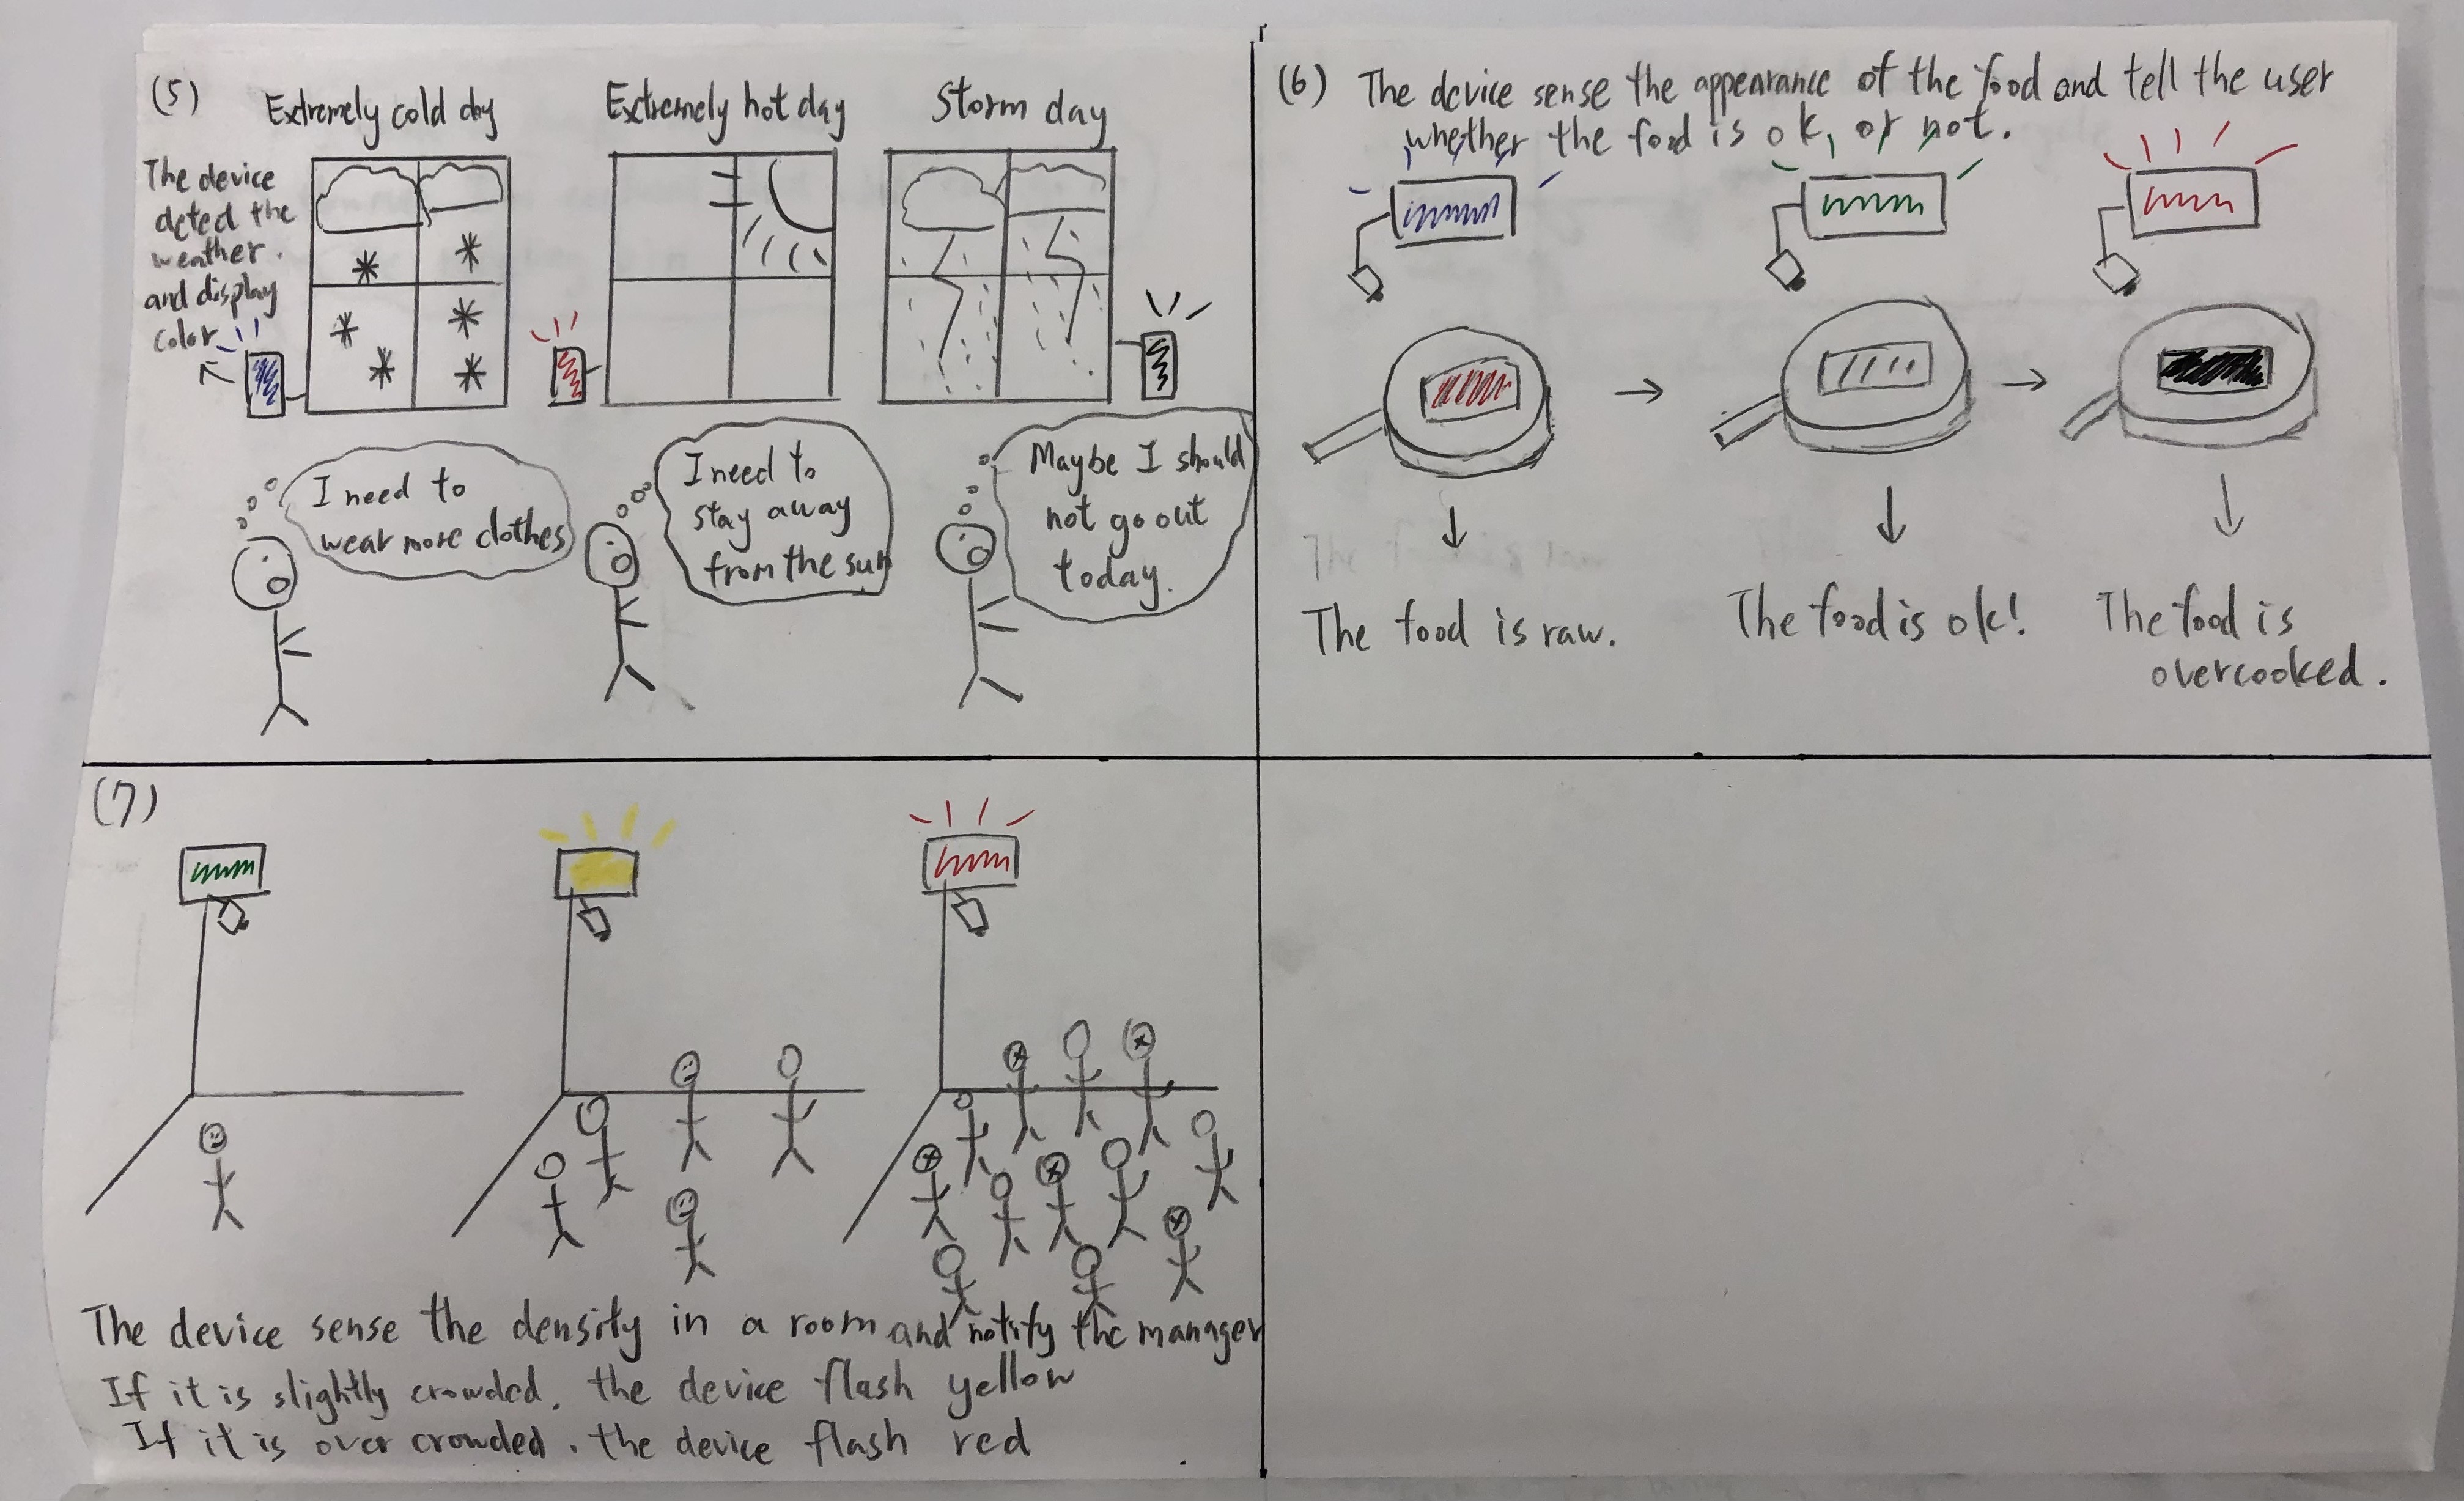 (5)
Extremely cold day
Extremely hot day
Storm day
The device
deted the
weather.
and display
color
I need to
wear more clothes
I need to
stay away
from the sun
Maybe I should
not go out
today.
(6) The device sense the appearance of the food and tell the user
whether the food is ok, or not.
The food is raw.
The food is ok!
The food is
overcooked.
(7)
The device sense the density in a room and notify the manager
If it is slightly crowded, the device flash yellow
If it is over crowded, the device flash red